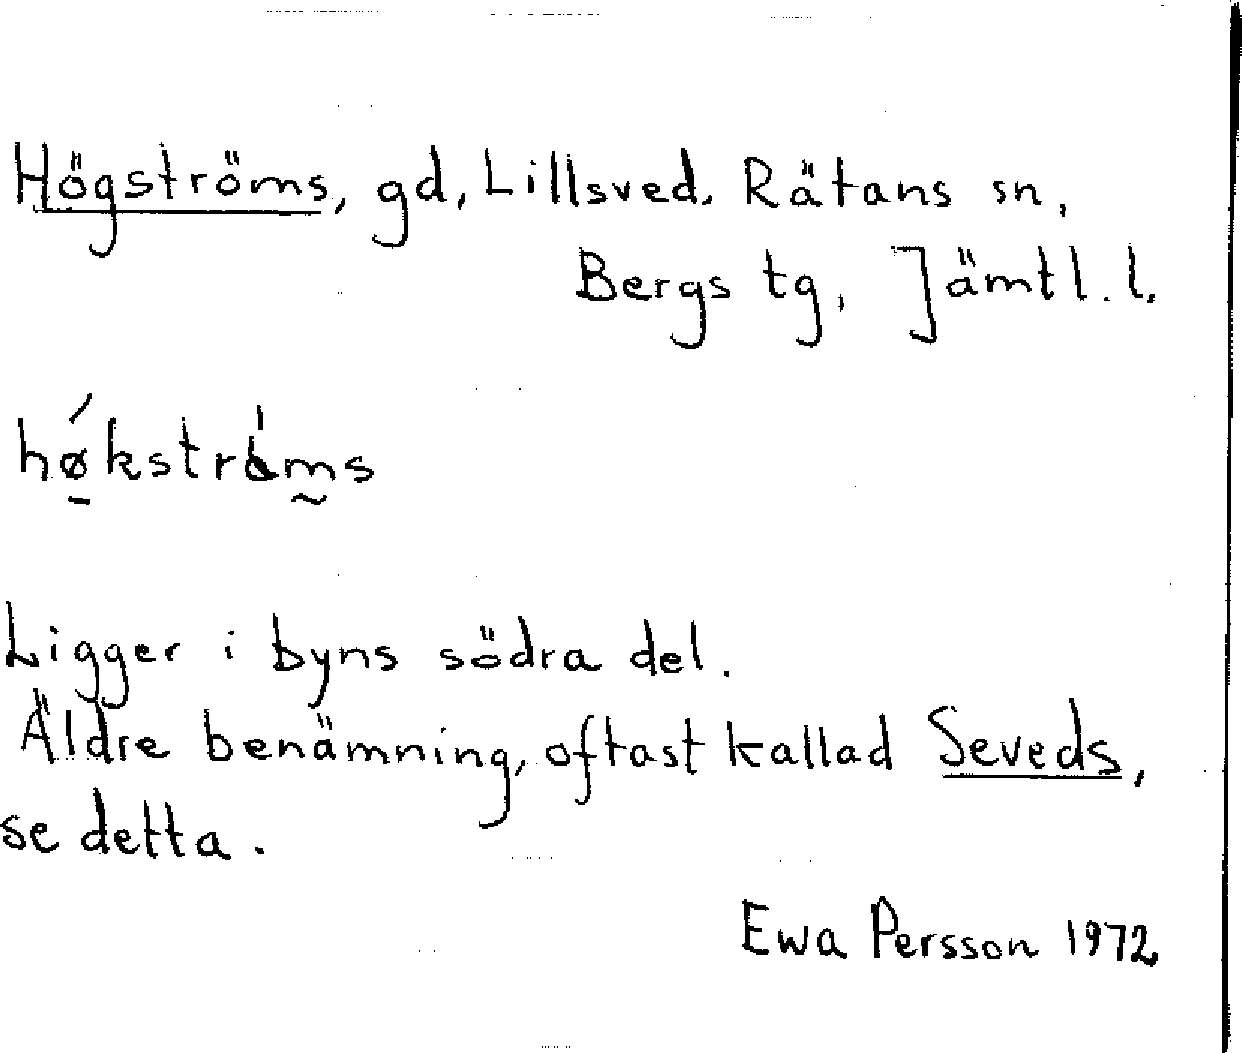 Högströms, gd, Lillsved, Rätans sn,
Bergs tg, Jämtl. l.
hǿ̱kstrò̀m̰s
Ligger i byns södra del.
Äldre benämning, oftast kallad Seveds,
se detta.
Ewa Persson 1972